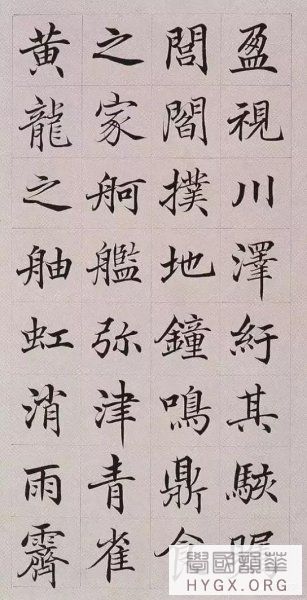 盈視川澤紆其駭
閭閻撲地鐘鳴鼎
之家舸艦弥津青雀
黄龍之舳虹消雨霽
學國韻華
HYGX.ORG